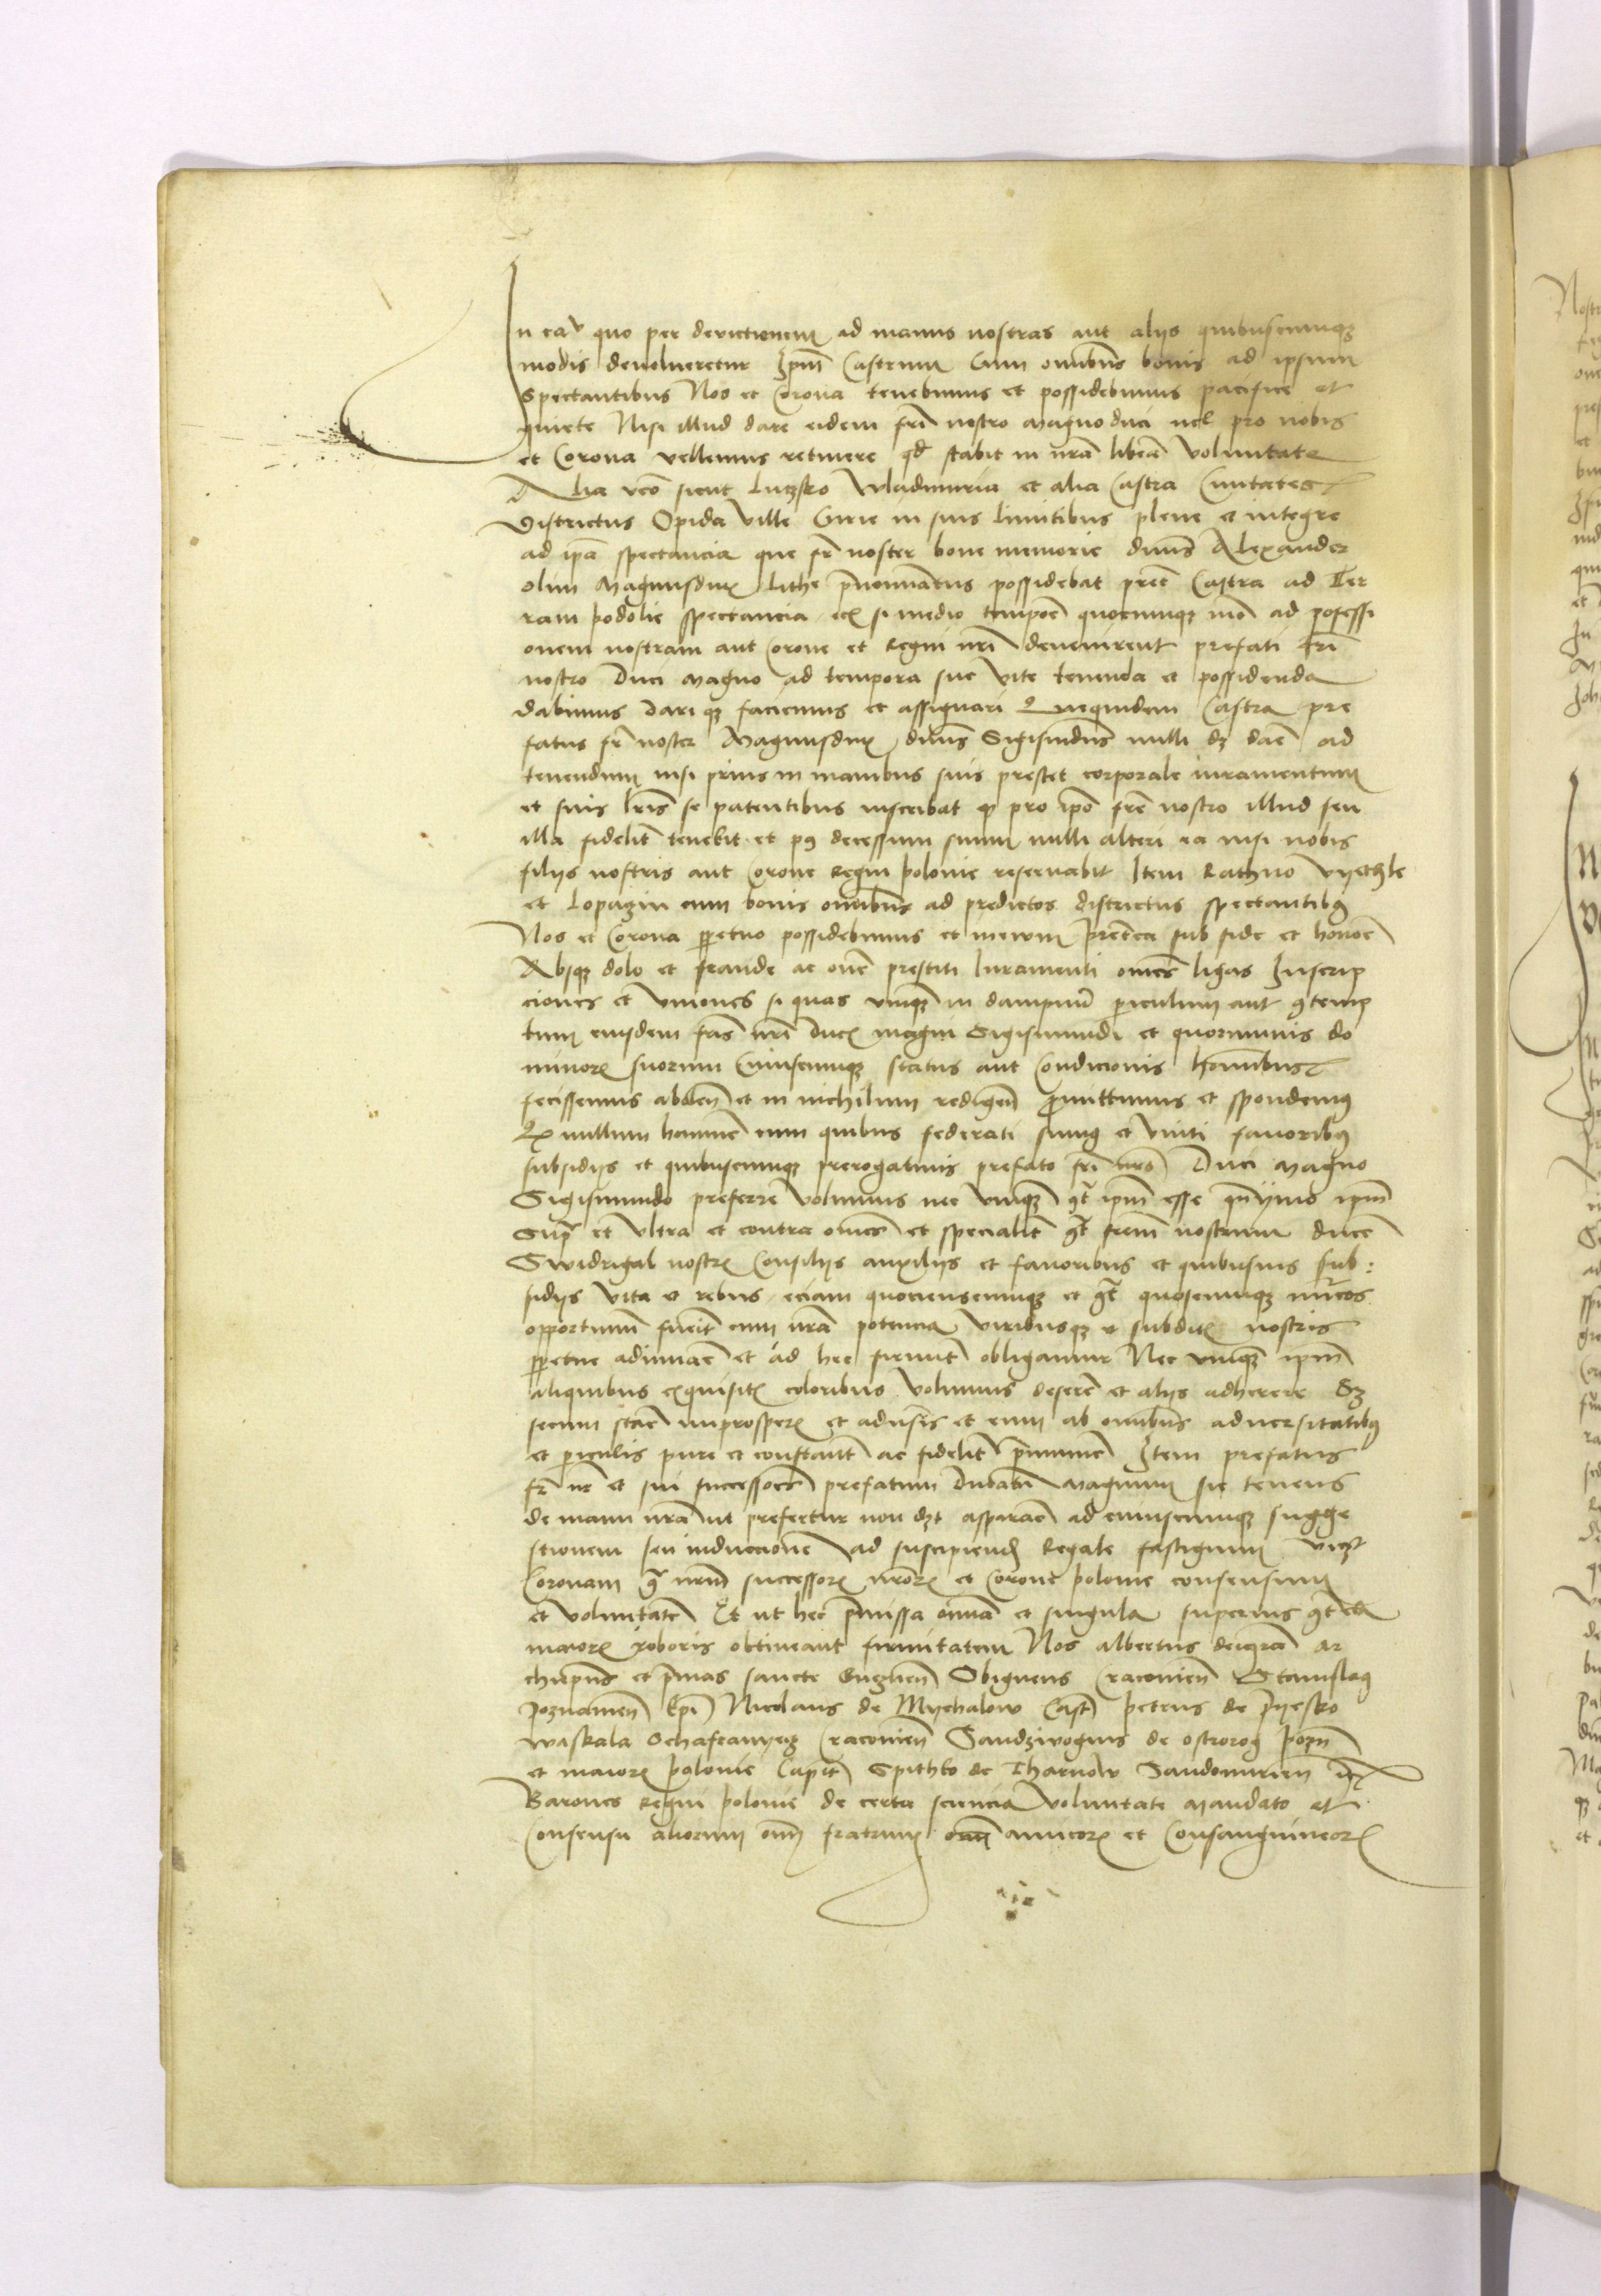 In eav quo per devictionem ad manus nostras aut alijs quibuscumqz
modis devolveretur Ipm̄ Castrum Cum omibus bonis ad ipsum
Spectantibus Nos et Corona tenebimus et possidebimus pacifice et
quiete Nisi illud dare eidem frī nostro magno duci vel pro nobis
et Corona vellemus retinere qd̄ stabit in nrā liberā voluntate
Alia vēo sicut Luczsko Wladimiria et alia Castra Civitates
Districtus Opida Ville Curie in suis limitibus plene et integre
ad ip̄a spectancia que fr̄ noster bone memorie dnūs Alexander
olim Magnusdux Lithe p̄nominatus possidebat pret̄ Castra ad Ter
ram podolie spectancia ecz si medio tempore quocumqz mō ad possessi
onem nostram aut Corone et Regni nrī devenirent prefati frī
nostro Duci magno ad tempora sue vite tenenda et possidenda
dabimus dariqz faciemus et assignari Quequidem Castra pre
fatus fr̄ noster Magnusdux dnūs Sigismdus nulli dz daē ad
tenendum nisi prius in manibus suis prestet corporale iuramentum
et suis lrīs se patentibus inscribat q pro ipō frē nostro illud seu
illa fidelit̄ tenebit et p9 decessum suum nulli alteri ea nisi nobis
filijs nostris aut Corone Regni polonie reservabit Item Rathno Vyethle
et Lopazin cum bonis omibus ad predictos districtus spectantib9
Nos et Corona ppetuo possidebimus et in evum preterea sub fide et honoē
Absqz dolo et fraude ac onē prestiti Iuramenti omēs ligas Inscrip
ciones et Uniones si quas unqz in dampnū piculum aut 9temp
tum eiusdem frīs nrī ducis magni Sigismundi et quorumvis do
miniorz suorum Cuiuscumqz status aut Condicionis hominibus
fecissemus abolen̄ et in nichilum redigen̄ Promittimus et spondem9
Qz nullum hominē cum quibus federati sum9 et Uniti favorib9
subsidijs et quibuscumqz prerogativis prefato frī nrō Duci magno
Sigismundo preferre Volumus nec Unqz 9t ipm̄ esse qn̄ymo ipm̄
Supra et Ultra et contra omēs et specialit̄ 9t frem̄ nostrum ducē
Swidrigal nostris Consilijs auxilijs et favoribus et quibusvis sub:
sidijs Vita et rebus eciam quocienscumqz et 9t quoscumqz
opportunū fuerit cum nrā potencia viribusqz et subditis nostris
ppetue adiuvaē et ad hec firmit̄ obligamur Nec Unqz ipm̄
aliquibus exquisitis coloribus Volumus deserē et alijs adherere Sz
secum staē improsperis et adversis et eum ab omibus adversitatib9
et piculis pure et constant̄ ac fidelit̄ p̄munire Item prefatus
fr̄ nr̄ et sui successores prefatum Ducatū magnum sic tenens
de manu nrā ut prefertur non dz asparaē ad cuiuscumqz sugge
stionem seu induccionē ad suscipiend̄ Regale fastigium
Coronam nrm̄ successorz nrōrz et Corone polonie consensum
et voluntatē Et ut hec p̄missa omia et singula superius 9t̄
maiorz roboris obtineant firmitatem Nos Albertus dei gra Ar
chiepus et p̄mas sancte Gnezn̄ Sbigneus Cracovien̄ Stanisla9
Poznanien̄ Epī Nicolaus de Mychalow Cast̄ petrus de pyesko
waskala Schafranyecz Cracovien̄ Sandziwogius de Ostrorog pozn̄
et maiorz polonie Capit̄ Spithko de Tharnow Sandomirien̄ etc̄
Barones Regni polonie de certa sciencia Voluntate Mandato et
Consensu aliorum omnī fratrum amicorz et Consanguineorz